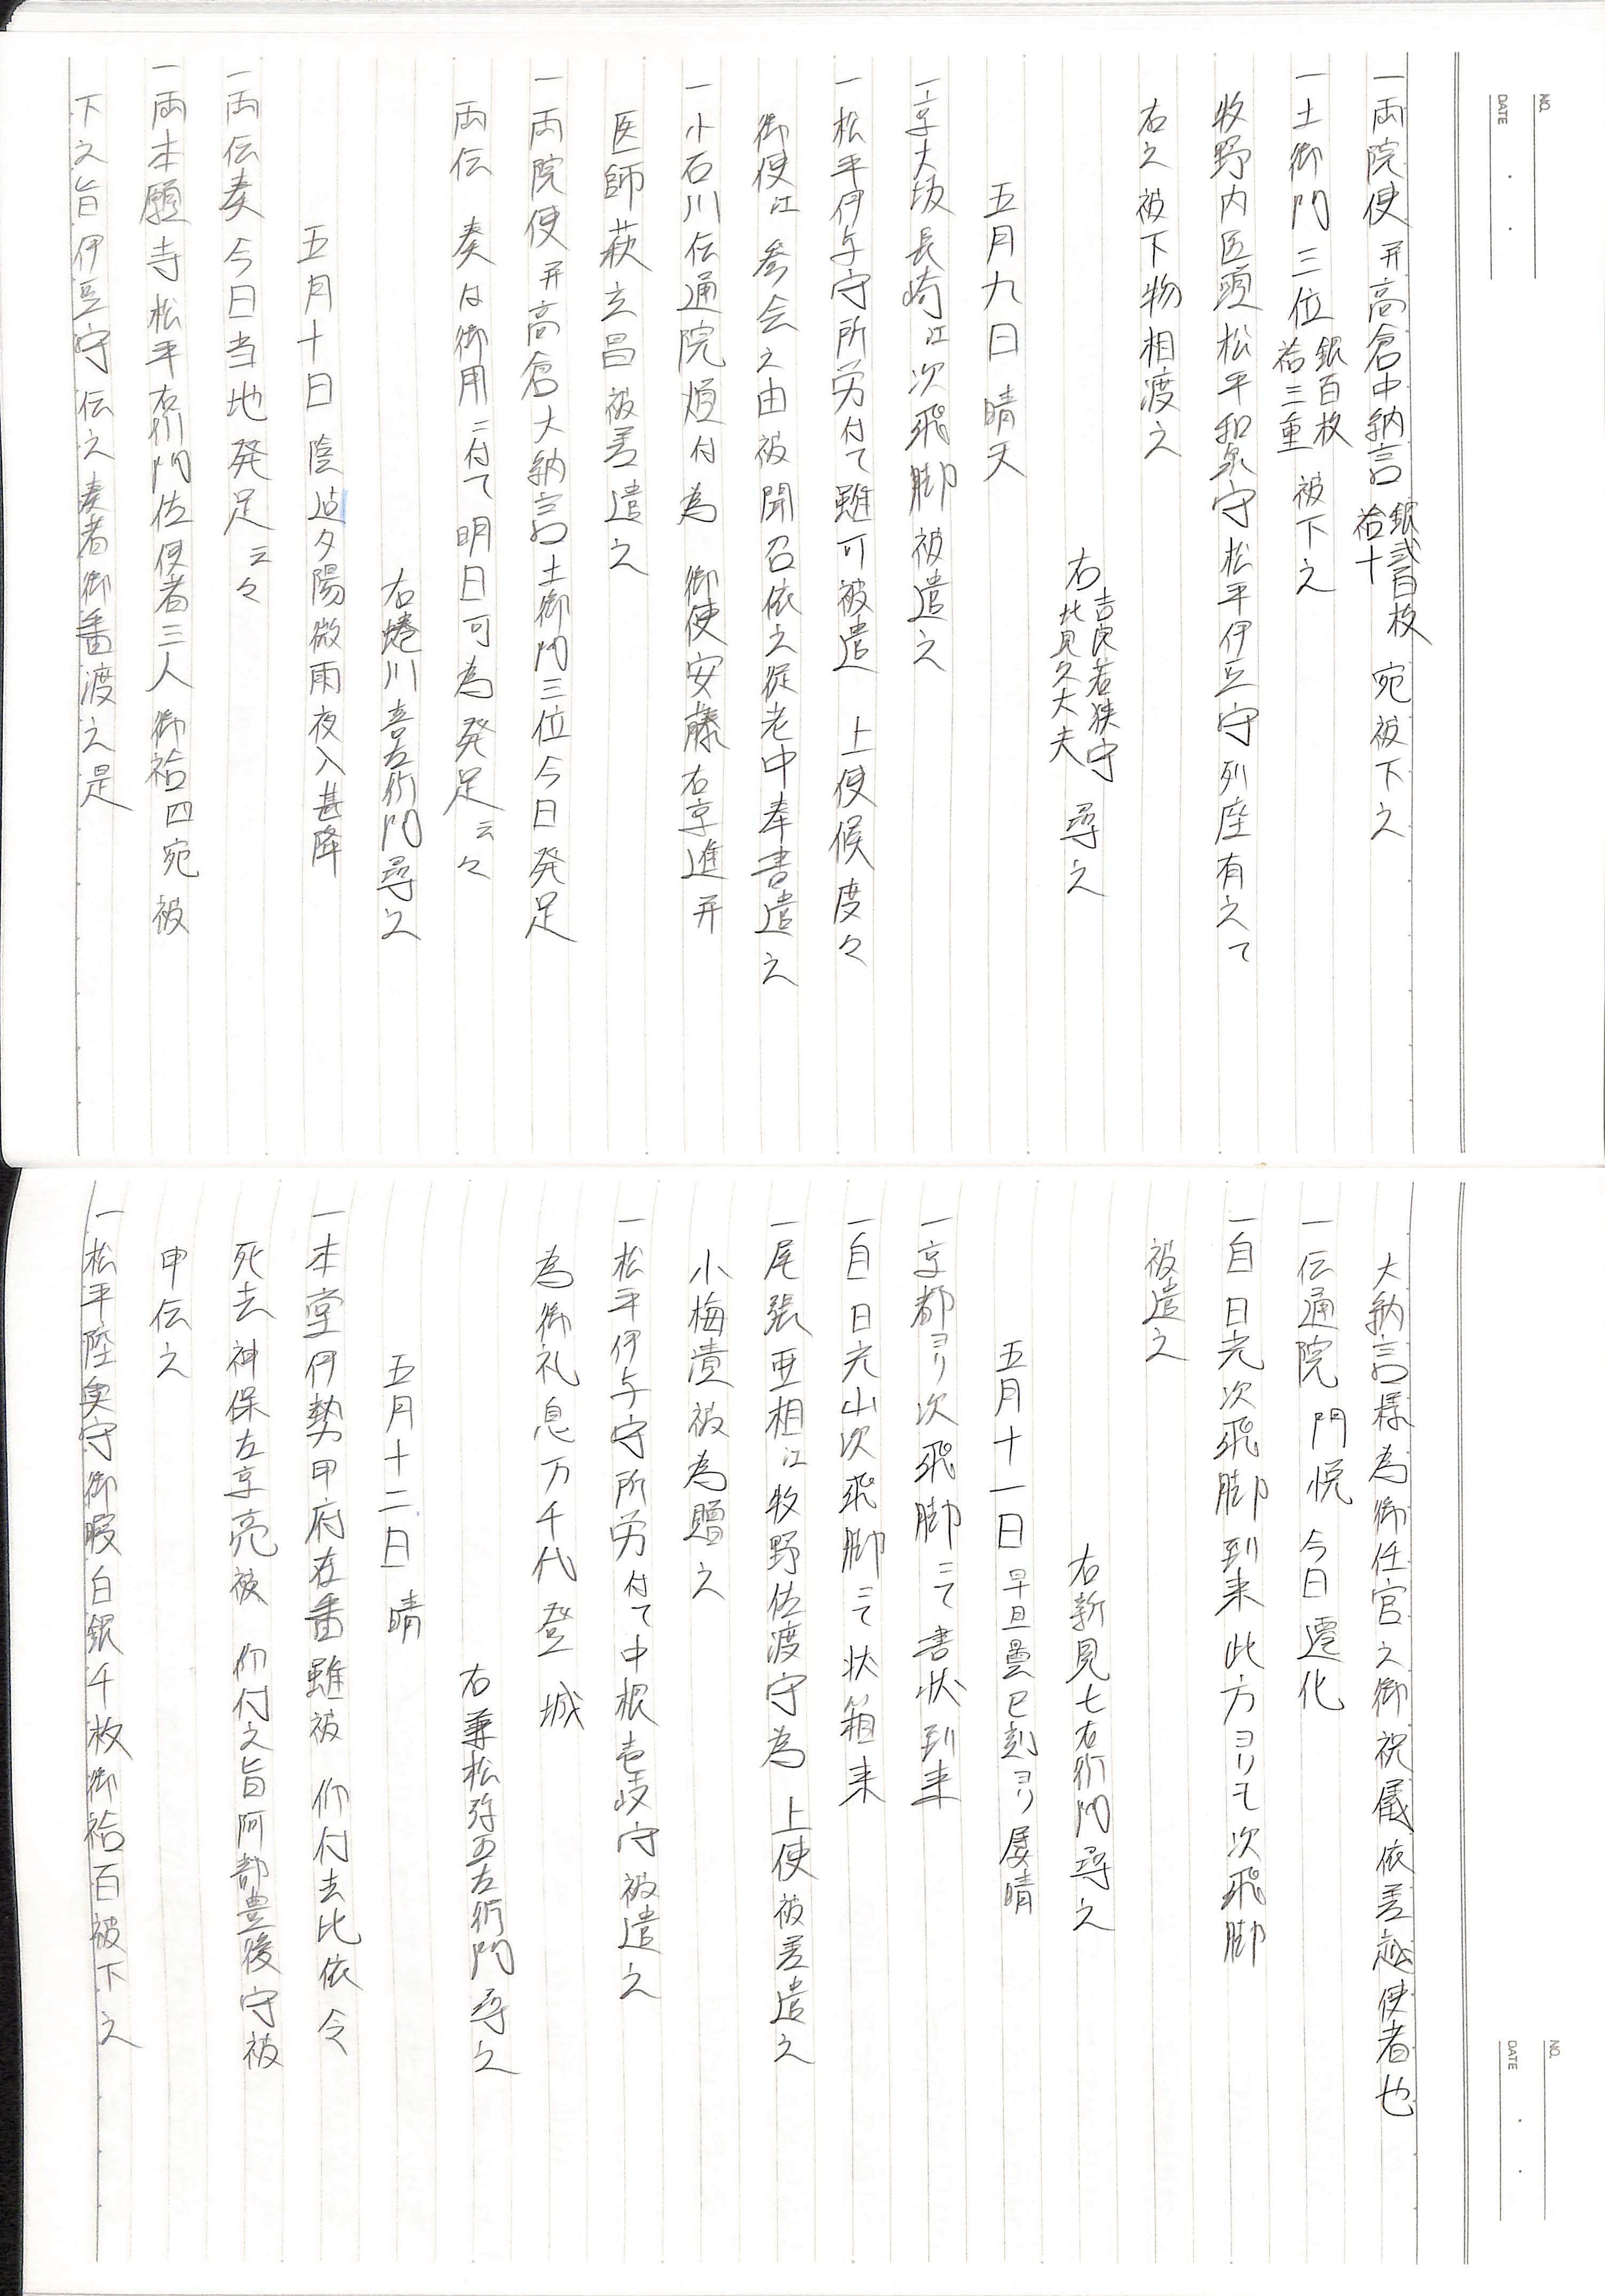 NO.
DATE
一両院使并高倉中納言 銀弐百枚 袷十 宛被下之
一土御門三位 銀百枚 袷三重 被下之
牧野内匠頭松平和泉守松平伊豆守列座有之て
右之被下物相渡之
右 吉良若狭守 北見久大夫 尋之
五月九日 晴天
一京大坂長崎江次飛脚被遣之
一松平伊与守所労付て雖可被遣 上使候度々
御使江参会之由被聞召依之従老中奉書遣之
一小石川伝通院煩付為 御使安藤右京進并
医師萩立昌被差遣之
一両院使并高倉大納言土御門三位今日発足
両伝 奏は御用ニ付て明日可為発足云々
右蜷川喜左衛門尋之
五月十日 陰 迨夕陽微雨夜入甚降
一両伝奏今日当地発足云々
一両本願寺松平右衛門佐使者三人御袷四宛被
下之旨伊豆守伝之奏者御番渡之是
NO.
DATE
大納言様為御任官之御祝儀依差越使者也
一伝通院 門悦 今日遷化
一自日光次飛脚到来此方ヨリモ次飛脚
被遣之
右新見七右衛門尋之
五月十一日 早旦曇巳刻ヨリ屡晴
一京都ヨリ次飛脚ニて書状到来
一自日光山次飛脚ニて状箱来
一尾張亜相江牧野佐渡守為 上使被差遣之
小梅漬被為贈之
一松平伊与守所労付て中根壱岐守被遣之
為御礼息万千代登 城
右兼松弥五左衛門尋之
五月十二日 晴
一本堂伊勢甲府在番雖被 仰付去比依令
死去神保左京亮被 仰付之旨阿部豊後守被
申伝之
一松平陸奥守御暇白銀千枚御袷百被下之